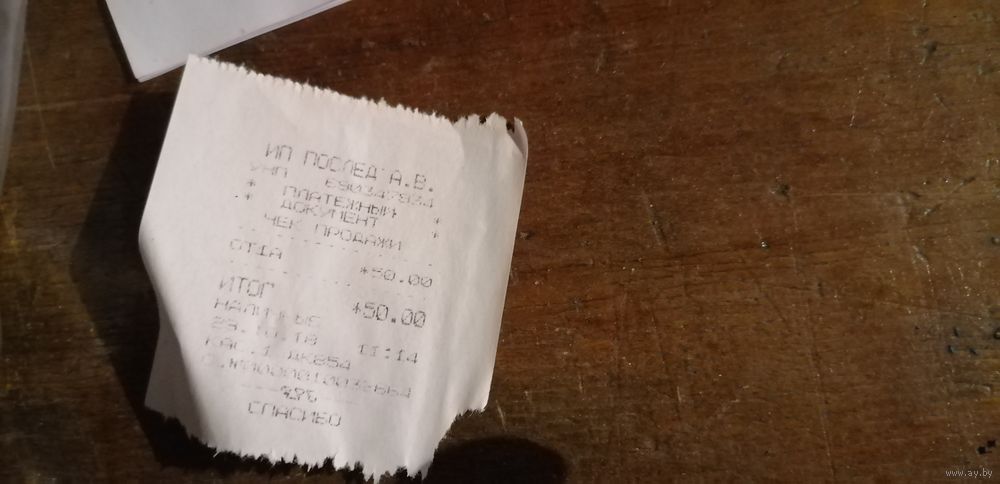 ИП ПОСЛЕД А.В.
УНП 690347834
* ПЛАТЕЖНЫЙ *
* ДОКУМЕНТ *
ЧЕК ПРОДАЖИ
ОТ1А *50.00
ИТОГ *50.00
НАЛИЧНЫЕ
11:14
КАС.1 ДК854
СПАСИБО
www.ay.by